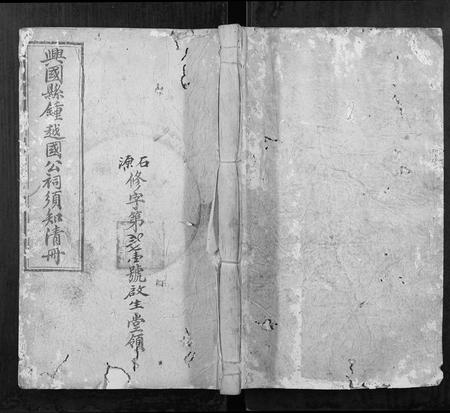 興國縣鍾越國公祠須知清冊
石源
修字第 號啟生堂領